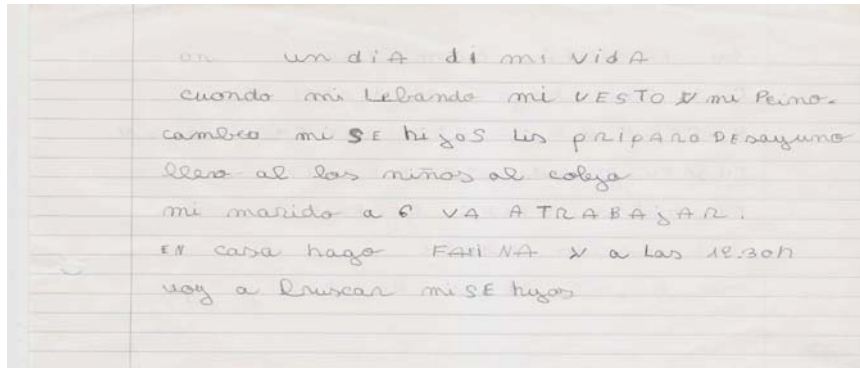 un diA di mi vidA
cuondo mi Lebando mi VESTO y mi Peino.
cambeo mi SE hijos Lis pRiPARo DEsayuno
llevo al los niños al coleja
mi marido a 6 VA A TRABAJAR.
EN casa hago FAIINA y a las 12.30h
voy a bruscar miSE hijos